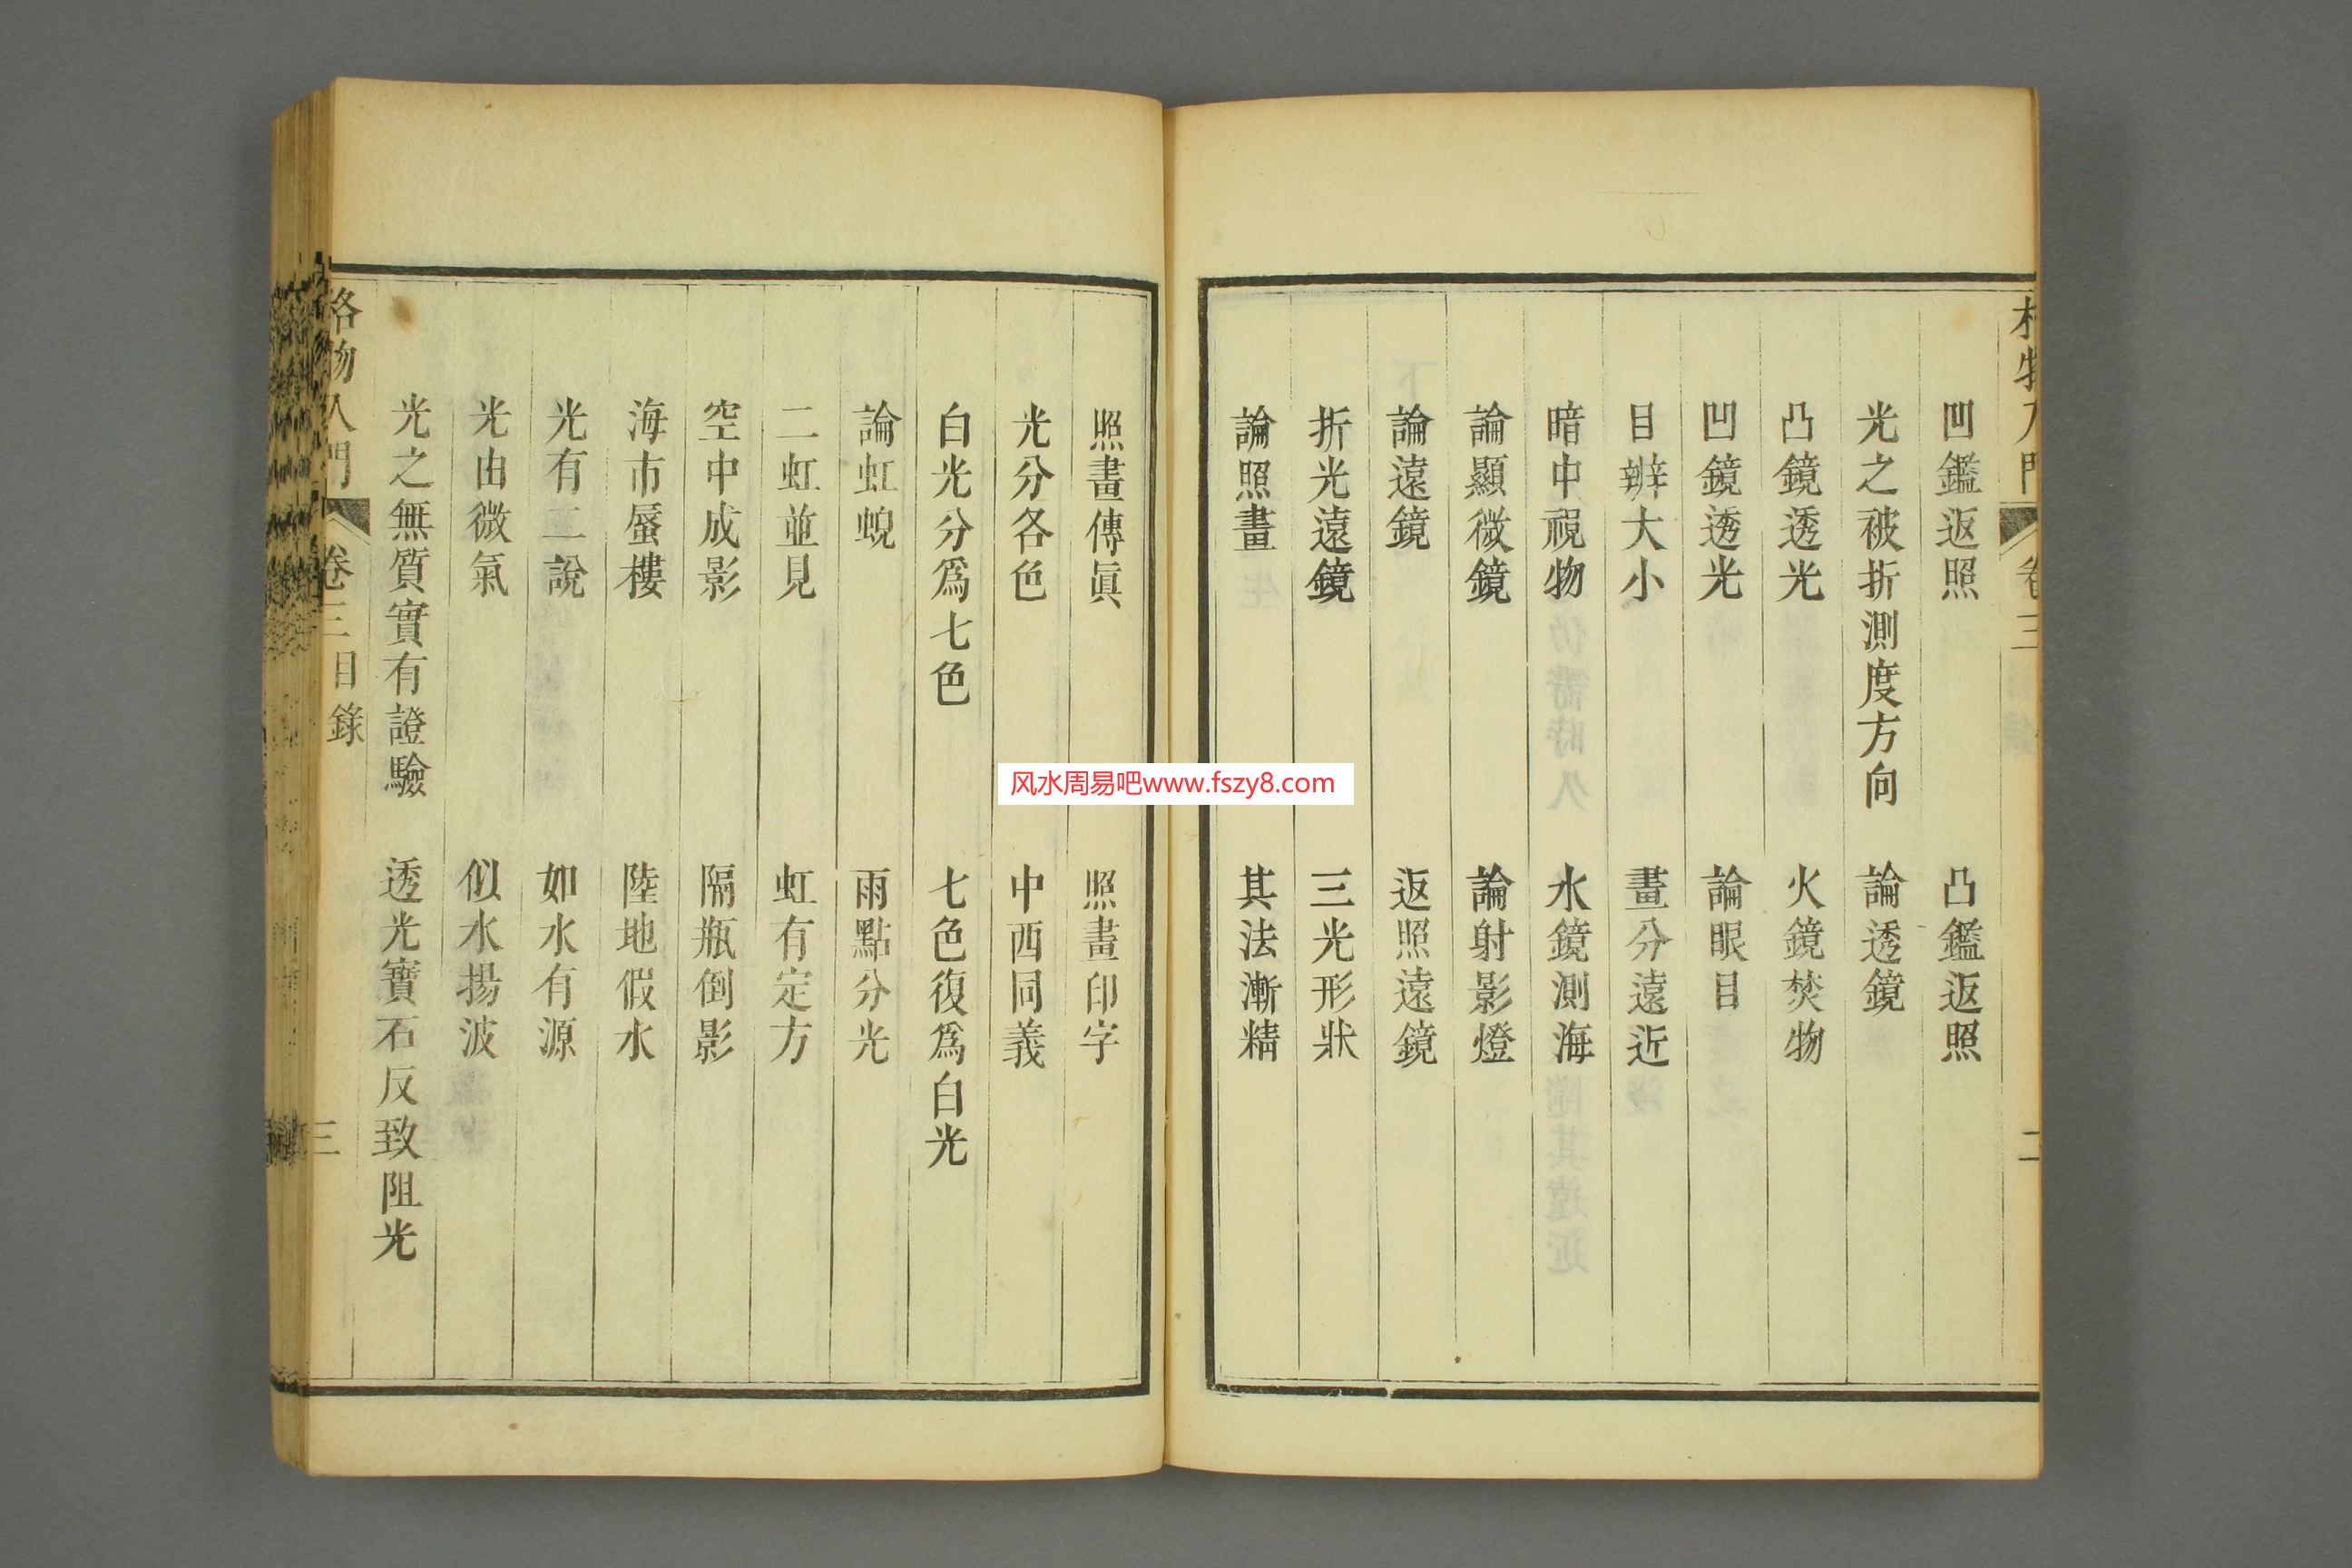 格物入門 卷三 二
凹鑑返照 凸鑑返照
光之被折測度方向 論透鏡
凸鏡透光 火鏡焚物
凹鏡透光 論眼目
目辨大小 畫分遠近
暗中視物 水鏡測海
論顯微鏡 論射影燈
論遠鏡 返照遠鏡
折光遠鏡 三光形狀
論照畫 其法漸精
照畫傳眞 照畫印字
光分各色 中西同義
白光分爲七色 七色復爲白光
論虹蜺 雨點分光
二虹並見 虹有定方
空中成影 隔瓶倒影
海市蜃樓 陸地假水
光有二說 如水有源
光由微氣 似水揚波
光之無質實有證驗 透光寶石反致阻光
格物入門 卷三目錄 三
风水周易吧www.fszy8.com